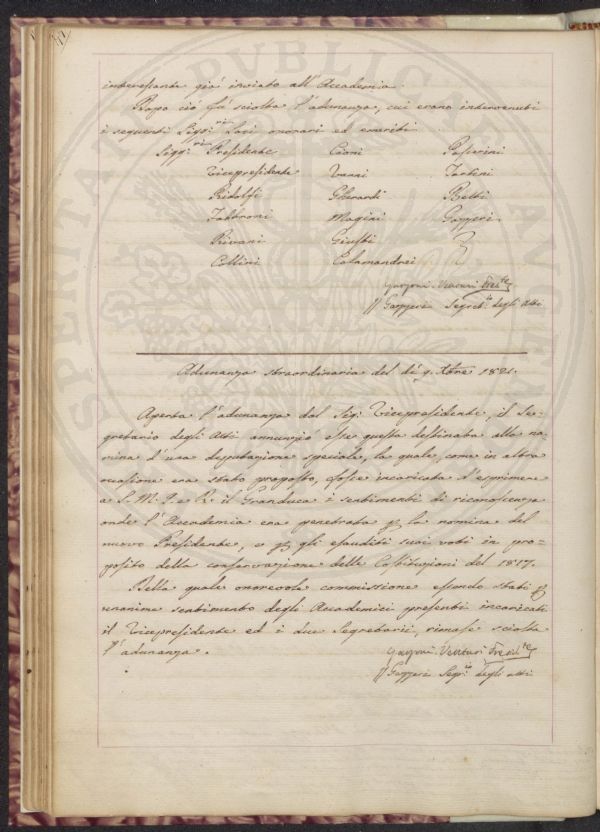 interessante già inviato all'Accademia.
Dopo ciò fù sciolta l'adunanza, cui erano intervenuti
i seguenti Sigg.ri Soci onorari ed emeriti
Sigg.ri Presidente Cioni Passerini
Vicepresidente Vanni Tartini
Ridolfi Gherardi Betti
Fabbroni Magini Gazzeri
Rivani Giusti
Collini Calamandrei
Garzoni Venturi Presid.te
G. Gazzeri Segret.io degli Atti
Adunanza straordinaria del dì 9. Xbre 1821.
Aperta l'adunanza dal Sig.r Vicepresidente, il Se=
gretario degli Atti annunziò esser questa destinata alla no=
mina d'una deputazione speciale, la quale, come in altra
occasione era stato proposto, fosse incaricata d'esprimere
a S. M. I. e R. il Granduca i sentimenti di riconoscenza
onde l'Accademia era penetrata p la nomina del
nuovo Presidente, e p gli esauditi suoi voti in pro=
posito della conservazione delle Costituzioni del 1817.
Della quale onorevole commissione essendo stati p
unanime sentimento degli Accademici presenti incaricati
il Vicepresidente ed i due Segretarii, rimase sciolta
l'adunanza.
Garzoni Venturi Presid.te
G. Gazzeri Seg.io degli Atti